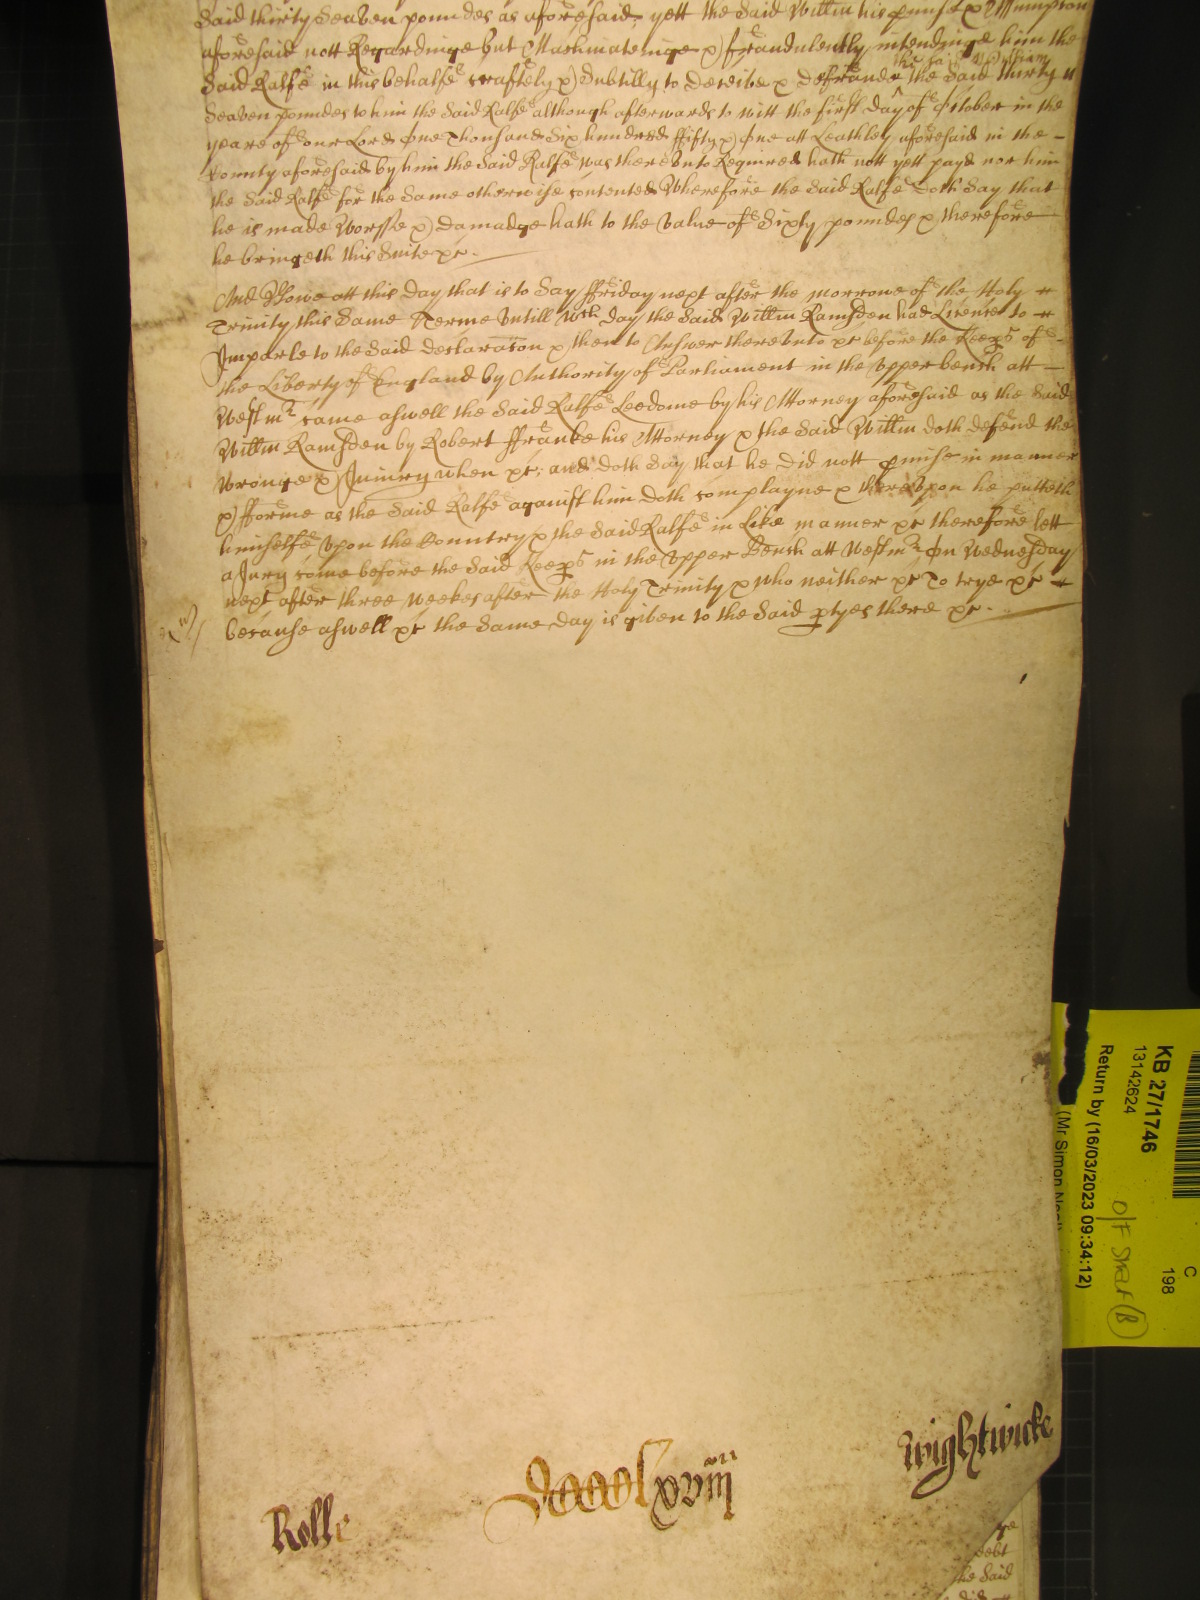 Said thirty Seaven poundes as aforesaid, yett the Said Willm his
aforesaid nott Regardinge but Machinateinge & fraudulently intendinge him the
Said Ralfe in this behalfe craftely & Subtilly to Deceive & Defraude the Said thirty
Seaven poundes to him the Said Ralfe although afterwards to witt the first day of October in the
yeare of our Lord One Thousand Six hundred ffifty & One att Leathley aforesaid in the
County aforesaid by him the Said Ralfe was thereunto Required hath nott yett payd nor him
the Said Ralfe for the Same otherwise contented Wherefore the Said Ralfe doth Say that
he is made Worsse & Damadge hath to the value of Sixty poundes & therefore
he bringeth this Suite &c.
And Nowe att this Day that is to Say ffriday next after the morrowe of the Holy
Trinity this Same Terme Untill wch day the Said Willm Ramsden had Licence to
Imparle to the Said declaracon & then to Answer thereunto &c before the Keeps of
the Liberty of England by Authority of Parliament in the upper bench att
Westmr came aswell the Said Ralfe Leedome by his Attorney aforesaid as the Said
Willm Ramsden by Robert ffranke his Attorney & the Said Willm doth defend the
Wronge & Iniury when &c: and doth Say that he did nott pmise in manner
& fforme as the Said Ralfe against him doth complayne & thereupon he putteth
himselfe upon the Country & the Said Ralfe in Like manner &c therefore lett
a Jury come before the Said Keeps in the upper Bench att Westmr On Wednesday
next after three weekes after the Holy Trinity & who neither &c To trye &c
because aswell &c the Same day is given to the Said ptyes there &c.
KB 27/1746
13142624
Return by (16/03/2023 09:34:12)
(Mr Simon
C
198
Wightwicke
Rolle
debt
the Said